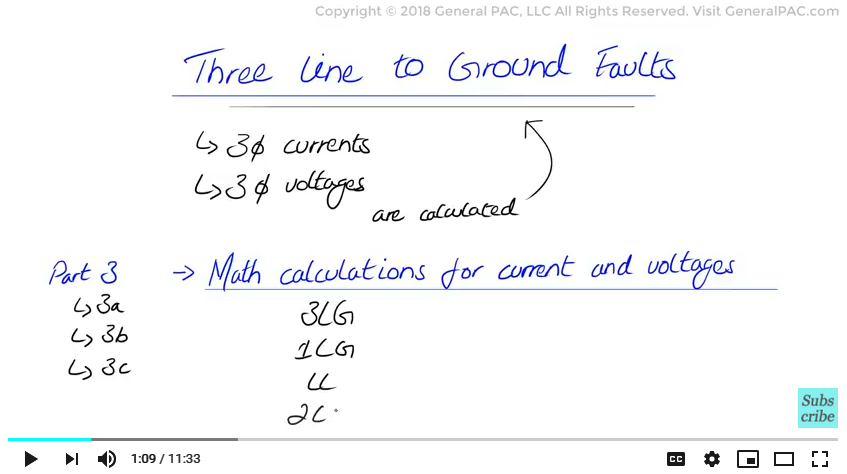 Copyright © 2018 General PAC, LLC All Rights Reserved. Visit GeneralPAC.com
Three Line to Ground Faults
↳ 3ϕ currents
↳ 3ϕ voltages
are calculated
Part 3 → Math calculations for current and voltages
↳ 3a
↳ 3b
↳ 3c
3LG
1LG
LL
2L
Subs
cribe
1:09 / 11:33
CC